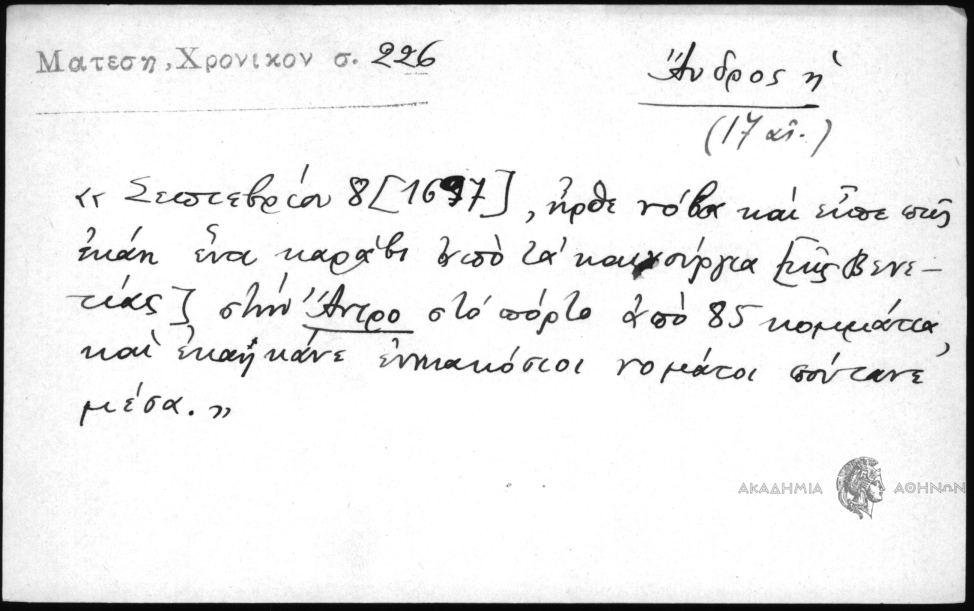 Ματεση, Χρονικον σ. 226
Ἄνδρος ἡ
(17 αἰ.)
« Σεπτεβρίου 8 [1697], ἦρθε νόβα καὶ εἶπε πῶς
ἐκάη ἕνα καράβι ἀπὸ τὰ καινούργια [τῆς Βενε-
τίας] στὴν Ἄντρο στὸ πόρτο ἀπὸ 85 κομμάτια,
καὶ ἐκαήκανε ἐννιακόσιοι νομάτοι πούτανε
μέσα. »
ΑΚΑΔΗΜΙΑ ΑΘΗΝΩΝ